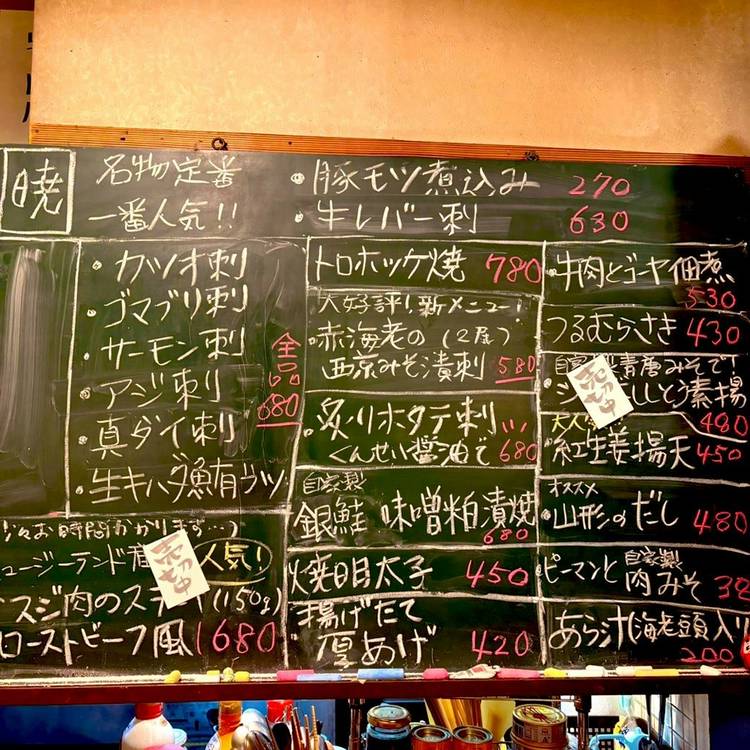 暁
名物定番
一番人気!!
・豚モツ煮込み 270
・牛レバー刺 630
・カツオ刺
・ゴマブリ刺
・サーモン刺
・アジ刺
・真ダイ刺
・生キハダ鮪有ウツ
全品680
お時間かかります…)
ュージーランド産
人気!
売切中
スジ肉のステ (150g)
ローストビーフ風 1680
トロホッケ焼 780
大好評!新メニュー!
・赤海老の(2尾)
西京みそ漬刺 580
・炙りホタテ刺
くんせい醤油で 680
自家製
銀鮭 味噌粕漬焼
680
焼明太子 450
揚げたて
厚あげ 420
・牛肉とゴーヤ佃煮
530
つるむらさき 430
自家製青唐みそで!
売切中
しと素揚
480
紅生姜揚天 450
オススメ
・山形のだし 480
・ピーマンと自家製肉みそ 38
あら汁(海老頭入り
200